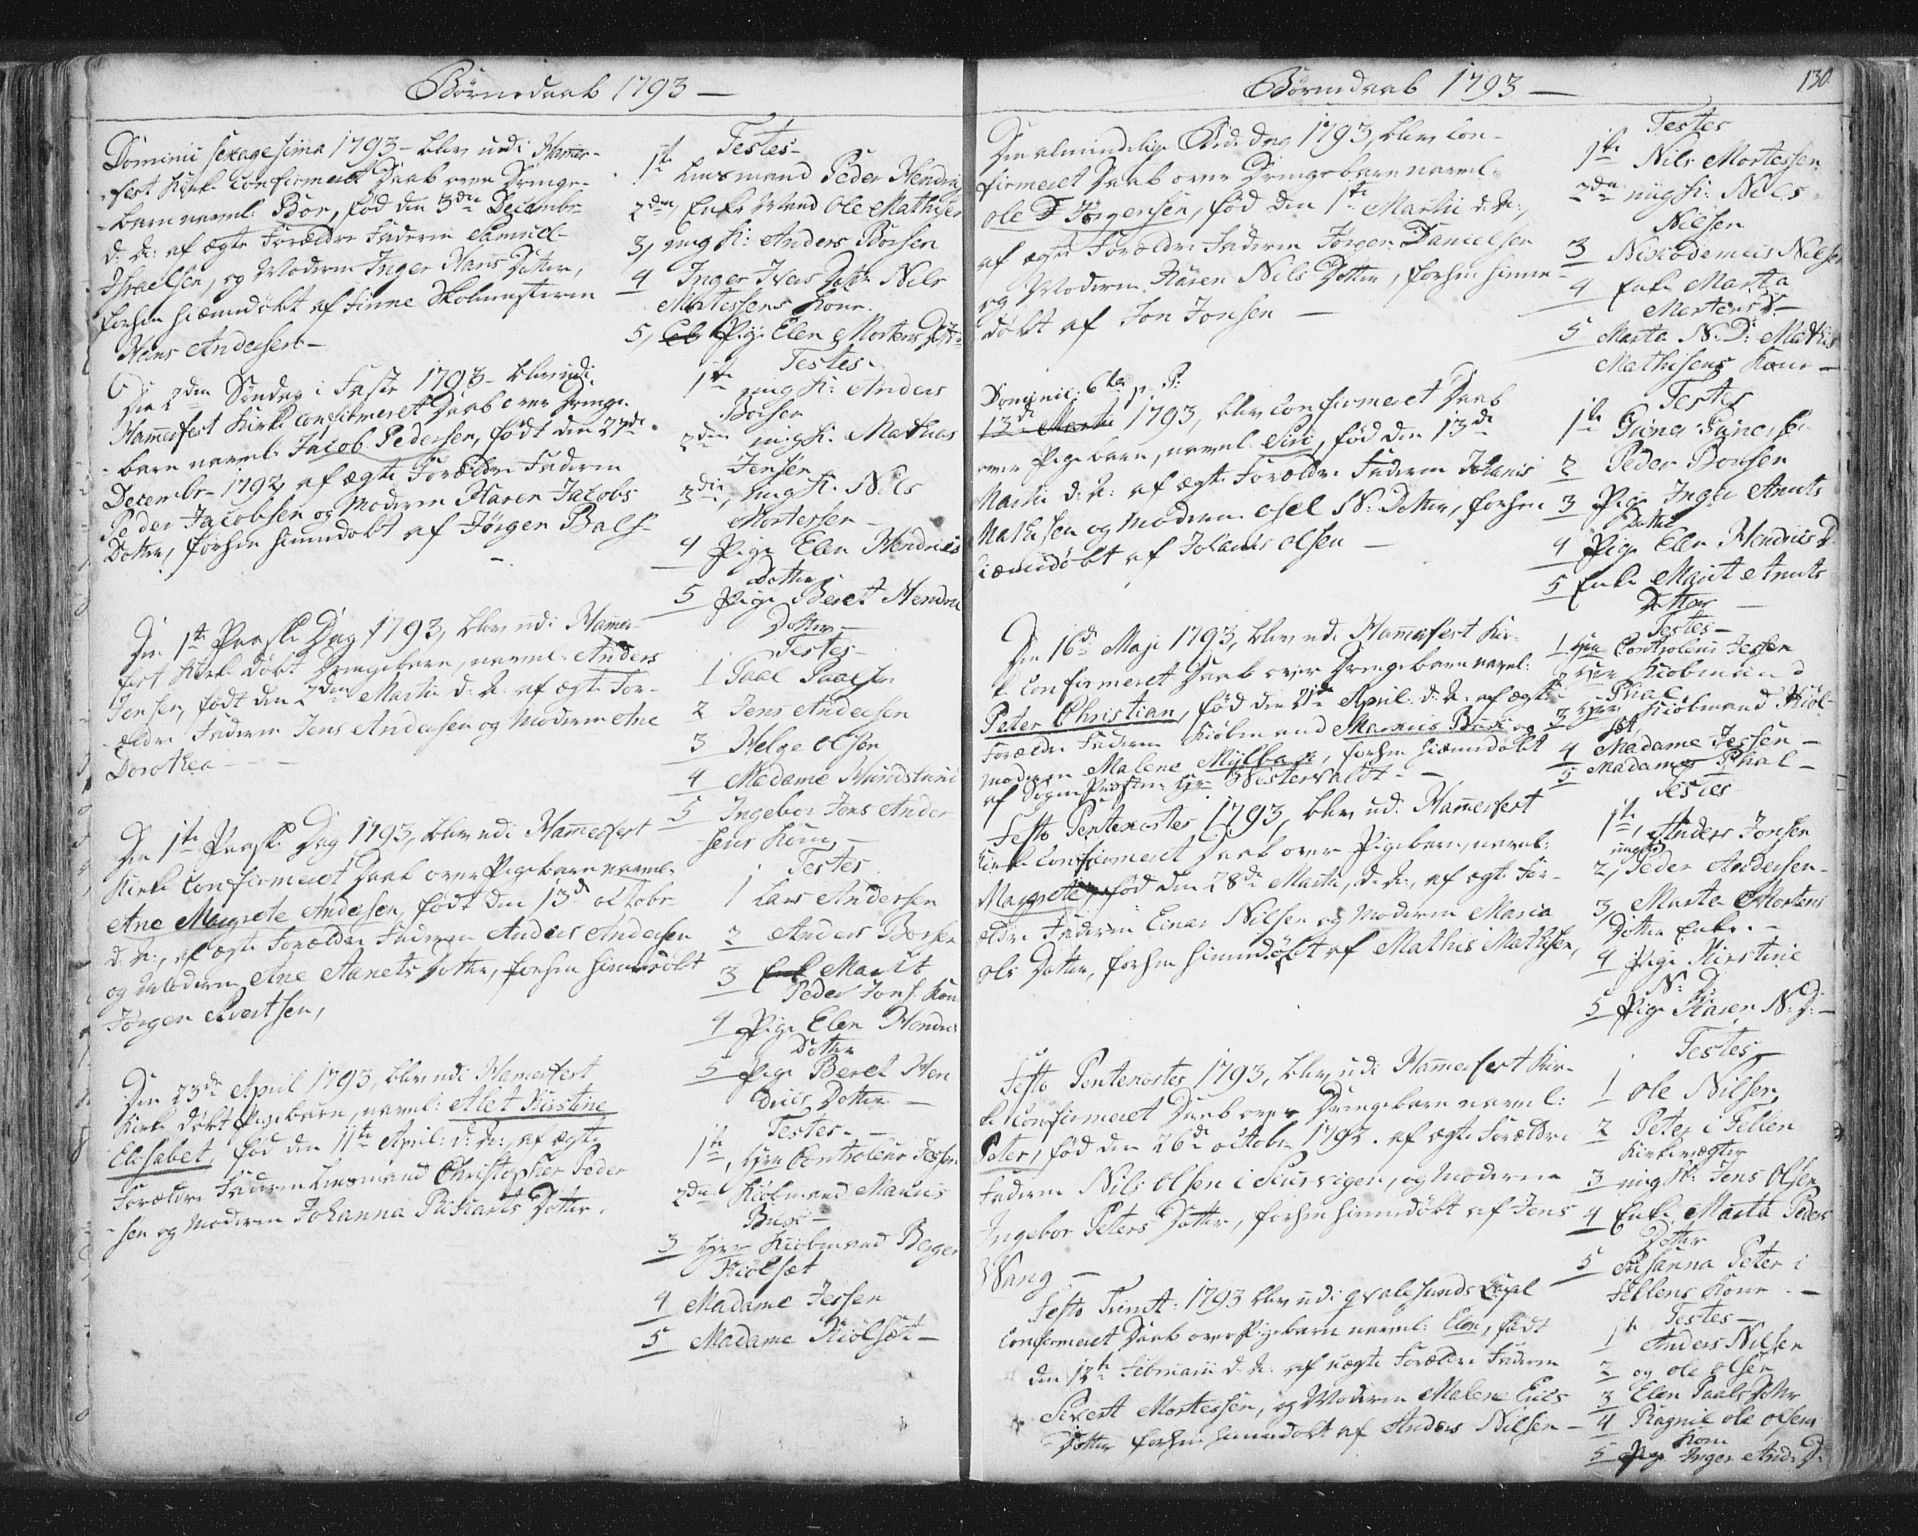 Børnedaab 1793 —
Dominic sexagesima 1793 - blev udi Hammer-
fest Kirke Confirmeret Daab over Drenge-
barn navnl. Bor, fød den 3die Decembr
d. A: af ægte Forældre Faderen Samuel
Israelsen, og Moderen Inger Hans Dotter,
forhen hiemmedøbt af Finne Skolemesteren
Hans Andersen -
Testes -
1ste Lensmand Peder Hendrich
2den Enke Mand Ole Mathisen
3, ung K: Anders Borsen
4 Inger Ivers Dotter Nils
Mortessens Kone.
5, Pige Elen Mortens Dotter
Den 2den Søndag i Faste 1793 - blev udi
Hammerfest Kirke Confirmeret Daab over Drenge-
barn navnl: Jacob Pedersen, født den 27de
Decembr 1792, af ægte Forældre Faderen
Peder Jacobsen og Moderen Karen Jacobs
Dotter, forhen hiemmedøbt af Jørgen Bals-
Testes -
1ste ung K: Anders
Borsen
2den ung K. Mathias
Jensen
3die, ung K. Nils
Mortessen -
4 Pige Elen Hendrics
Dotter
5 Pige Beret Hendric
Dotter -
Den 1ste Paaske Dag 1793, blev udi Hammer-
fest Kirke døbt Drengebarn, navnl: Anders
Jensen, født den 2den Martii d: A: af ægte For-
ældre Faderen Jens Andersen og Moderen Ane
Dorothea - - -
Testes -
1 Paal Paalsen
2 Jens Andersen
3 Helge Olsen
4 Madame Hundstund
5 Ingebor Jens Ander-
sens Kone
Den 1ste Paaske Dag 1793, blev udi Hammerfest
Kirke Confirmeret Daab over Pigebarn navnl.
Ane Margrete Andersen, født den 13de Octobr
d. A:, af ægte Forældre Faderen Anders Andersen
og Moderen Ane Aanets Dotter, forhen hiemmedøbt
Jørgen Evertsen,
Testes
1 Lars Andersen
2 Anders Borsen
3 Marit
Peder Jons. Kone
4 Pige Elen Hendrics
Dotter
5 Pige Beret Hen
drics Dotter -
Den 23de April 1793, blev udi Hammerfest
Kirke døbt Pigebarn, navnl: Alet Kirstine
Elisabet, fød den 11te April: d: A:, af ægte
Forældre Faderen Lensmand Christopher Peder
sen og Moderen Johanna Rikarts Dotter.
Testes. -
1te, Hrr Controleur Jessen
2den Kiøbmand Marcus
Buck -
3 Hrr Kiøbmand Berger
Kiølset
4 Madame Jessen
5 Madame Kiølset -
Børnedaab 1793 —
130
Den almindelige Bededag 1793, blev Con-
firmeret Daab over Drengebarn navnl:
Ole Jørgensen, fød den 1ste Martii d: A:,
af ægte Forældre Faderen Jørgen Danielsen
og Moderen Karen Nils Dotter, forhen hiemme-
døbt af Jon Jonsen —
Testes
1ste Nils Mortessen
2den ung K: Nils
Nilsen
3 Nicodemus Nilsen
4 Enke Marta
Mortens D. -
5 Marta N: D: Mathis
Mathisens Kone -
Dominic: 6ta p. P:
13de Martii 1793, blev Confirmeret Daab
over Pigebarn, navnl Siri, fød den 13de
Martii d. A: af ægte Forældre Faderen Johanis
Mathisen og Moderen Osel N: Dotter, forhen
hiemmedøbt af Johanis Olsen -
Testes
1te
2 Peder Borsen
3 Pige Inger Anuts
Dotter
4 Pige Elen Hendrics D.
5 Enke Marit Anuts
Dotter
Den 16de Maji 1793, blev udi Hammerfest Kir-
ke Confirmeret Daab over Drengebarn navnl:
Peter Christian, fød den 21de April: d: A: af ægte
Forældre Faderen Kiøbmand Marcus Buck og
Moderen Malene Mylbach, forhen hiemmedøbt
af Sogne Præsten Hrr Westervaldt - -
Testes -
1 Hrr Controleur Jessen
2 Hrr Kiobmand
Phal
3 Hrr Kiøbmand Kiøl-
set,
4 Madame Jessen -
5 Madame Phal -
Festo Pentecostes 1793, blev udi Hammerfest
Kirke Confirmeret Daab over Pigebarn, navnl:
Margrete, fød den 28de Martii, d: A:, af ægte For-
ældre Faderen Einer Nilsen og Moderen Maria
Ols Dotter, forhen hiemmedøbt af Mathis Mathisen,
Testes
1te, Anders Jonsen
ungK
2, Peder Andersen -
3, Marta Mortens
Dotter Enke. -
4 Pige Kirstine
N: D:
5 Pige Karen N. D: -
Festo Pentecostes 1793, blev udi Hammerfest Kir-
ke Confirmeret Daab over Drengebarn navnl:
Peter, fød den 26de Octobr 1792. af ægte Forældre
Faderen Nils Olsen i, og Moderen
Ingebor Peters Dotter, forhen hiemmedøbt af Jens
Wang -
Testes
1 Ole Nilsen,
2 Peter i Fellen
Kirkeværger
3 ung K: Jens Olsen
4 Enke Marta Peders
Dotter
5 Susanna Peter i
Fellens Kone. -
Festo Trinit: 1793 blev udi Qvalesunds Capel
Confirmeret Daab over Pigebarn navnl: Elen, født
den 12te Februarii d: A: af uægte Forældre Faderen
Sivert Mortessen, og Moderen Malene Erics
Dotter forhen hiemmedøbt af Anders Nilsen -
Testes -
1te Anders Nilsen
2 og Ole Olsen
3 Elen Paals Dottr
4 Ragnil Ole Olsens
Kone
5 Pige Inger And: D: